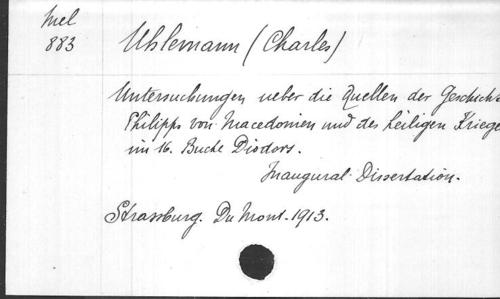 Mel
883
Uhlemann (Charles)
Untersuchungen ueber die Quellen der Geschichte
Philipps von Macedonien und des heiligen Krieges
im 16. Buche Diodors.
Inaugural-Dissertation.
Strassburg. Du Mont. 1913.